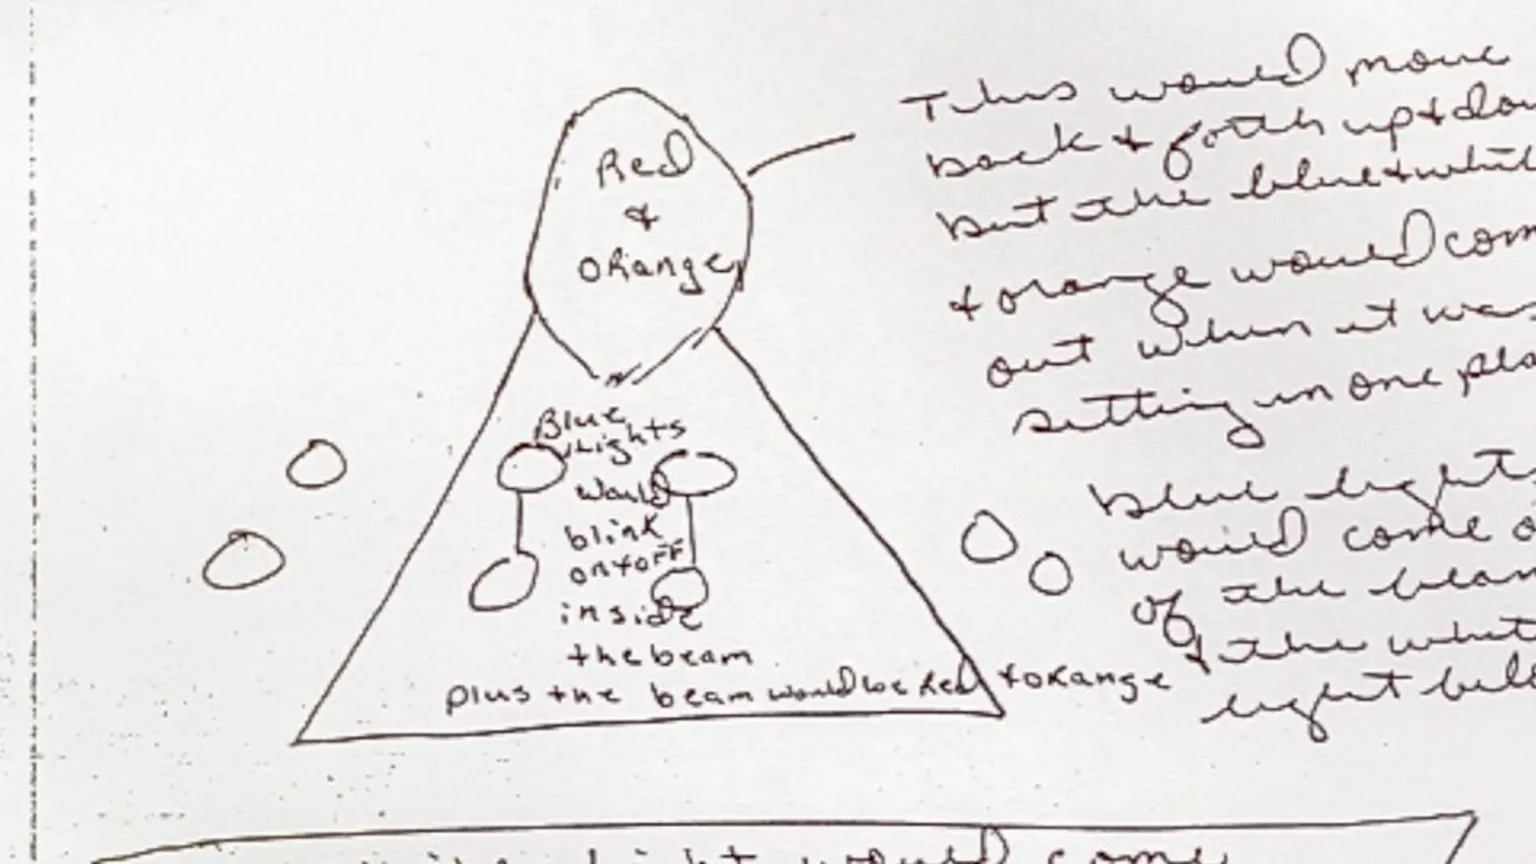 Red
&
orange
Blue
Lights
would
blink
on+off
inside
the beam
plus the beam would be Red + orange
This would move
back + forth up + dow
but the blue + whit
+ orange would com
out when it was
setting in one pla
Blue light
would come o
of the beam
+ the whit
light bel
light would come